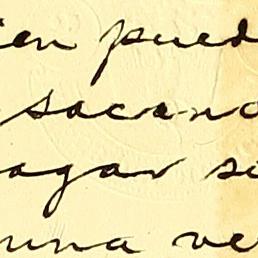 ien pued
sacand
agar se
una ve